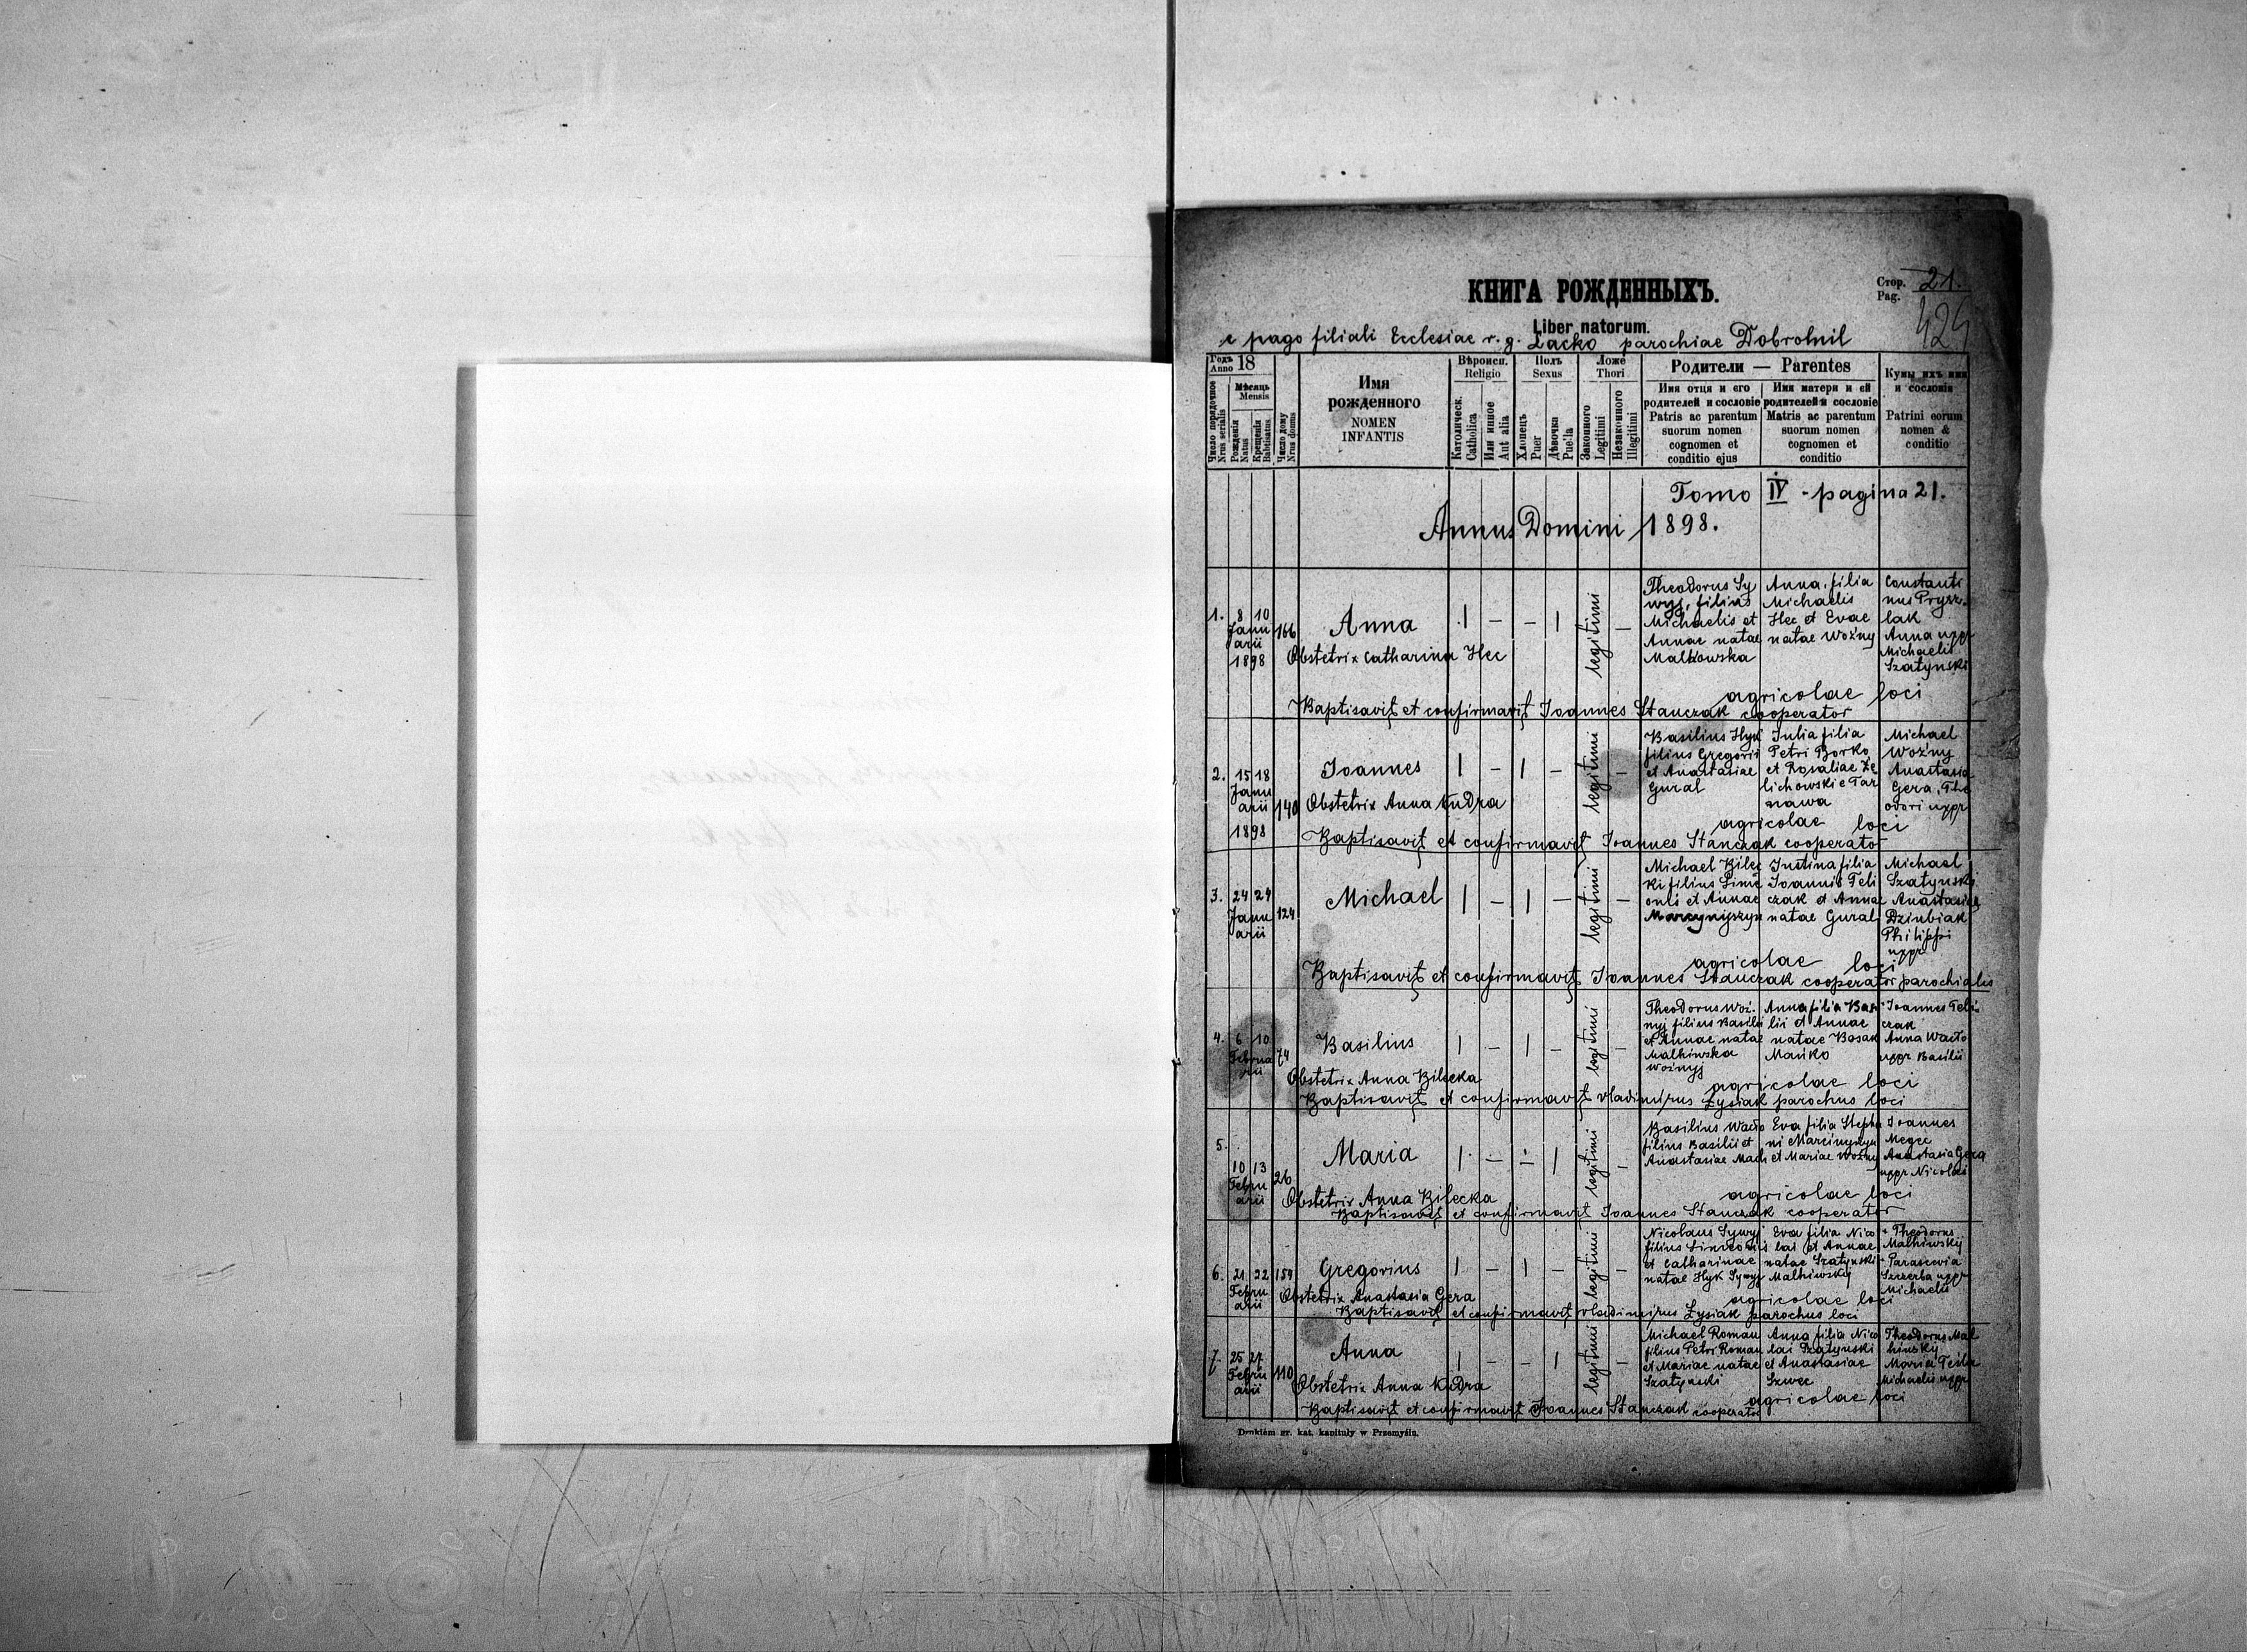 КНИГА РОЖДЕННЫХЪ.
Стор. 21.
Pag.
424
Liber natorum.
e pago filiali Ecclesiae r. g. Lacko parochiae Dobromil
Годъ 18
Anno
Мѣсяць
Mensis
Число порядочное
Nrus serialis
Рожденія
Natus
Крещенія
Babtisatus
Число дому
Nrus domus
Имя
рожденного
NOMEN
INFANTIS
Вѣроисп.
Religio
Католическ.
Catholica
Или инное
Aut alia
Полъ
Sexus
Хлопецъ
Puer
Дѣвочка
Puella
Ложе
Thori
Законного
Legitimi
Незаконного
Illegitimi
Родители — Parentes
Имя отця и его
родителей и сословіе
Patris ac parentum
suorum nomen
cognomen et
conditio ejus
Имя матери и ей
родителей и сословіе
Matris ac parentum
suorum nomen
cognomen et
conditio
Кумы ихъ имя
и сословія
Patrini eorum
nomen &
conditio
Tomo IV - pagina 21.
Annus Domini 1898.
1. 8 10 Janu arii 1898 166
Anna | – – | legitimi –
Obstetrix Catharina Hec
Theodorus Sy
wyj, filius
Michaelis et
Annae natae
Malkowska
Anna, filia
Michaelis
Hec et Evae
natae Woźny
Constanti
nus Prysz-
lak
Anna uxpr
Michaelis
Szatyński
agricolae loci
Baptisavit et confirmavit Joannes Stanczak cooperator
2. 15 18 Janu arii 1898 140
Joannes | – | – legitimi –
Obstetrix Anna Kudra
Basilius Hyk
filius Gregorii
et Anastasiae
Gural
Julia filia
Petri Borko
et Rosaliae Że
lichowski e Tar
nawa
Michael
Woźny
Anastasia
Gera, The
odori uxpr
agricolae loci
Baptisavit et confirmavit Joannes Stanczak cooperator
3. 24 29 Janu arii 124
Michael | – | – legitimi –
Michael Bilec
ki filius Sime
onis et Annae
Marcynyszyn
Justina filia
Joannis Teli
czak et Annae
natae Gural
Michael
Szatyński
Anastasia
Dziubiak
Philippi
uxpr
agricolae loci
Baptisavit et confirmavit Joannes Stanczak cooperator parochialis
4. 6 10 Februa rii 74
Basilius | – | – legitimi –
Obstetrix Anna Bilecka
Theodorus Woź-
nyj filius Basilii
et Annae natae
Malhiwska
Woźnyj
Anna filia Basi
lii et Annae
natae Bosak
Mańko
Joannes Teli
czak
Anna Wacło
uxpr Basilii
agricolae loci
Baptisavit et confirmavit Vladimirus Łysiak parochus loci
5. 10 13 Febru arii 26
Maria | – – | legitimi –
Obstetrix Anna Bilecka
Basilius Wacło
filius Basilii et
Anastasiae Mach
Eva filia Stepha
ni Marcinyszyn
et Mariae Woźny
Joannes
Megec
Anastasia Gera
uxpr Nicolai
agricolae loci
Baptisavit et confirmavit Joannes Stanczak cooperator
6. 21 22 Febru arii 159
Gregorius | – | – legitimi –
Obstetrix Anastasia Gera
Nicolaus Sywyj
filius Simeonis
et Catharinae
natae Hyk Sywyj
Eva filia Nico
lai et Annae
natae Szatyński
Malhiwskyj
Theodorus
Malhiwskyj
Parascevia
Szczerba uxpr
Michaelis
agricolae loci
Baptisavit et confirmavit Vladimirus Łysiak parochus loci
7. 25 27 Febru arii 110
Anna | – – | legitimi –
Obstetrix Anna Kudra
Michael Roman
filius Petri Roman
et Mariae natae
Szatyński
Anna filia Nico
lai Szatyński
et Anastasiae
Szwec
Theodorus Mal
hiwskyj
Maria
Michaelis uxpr
agricolae loci
Baptisavit et confirmavit Joannes Stanczak cooperator
Drukiem gr. kat. kapituły w Przemyślu.